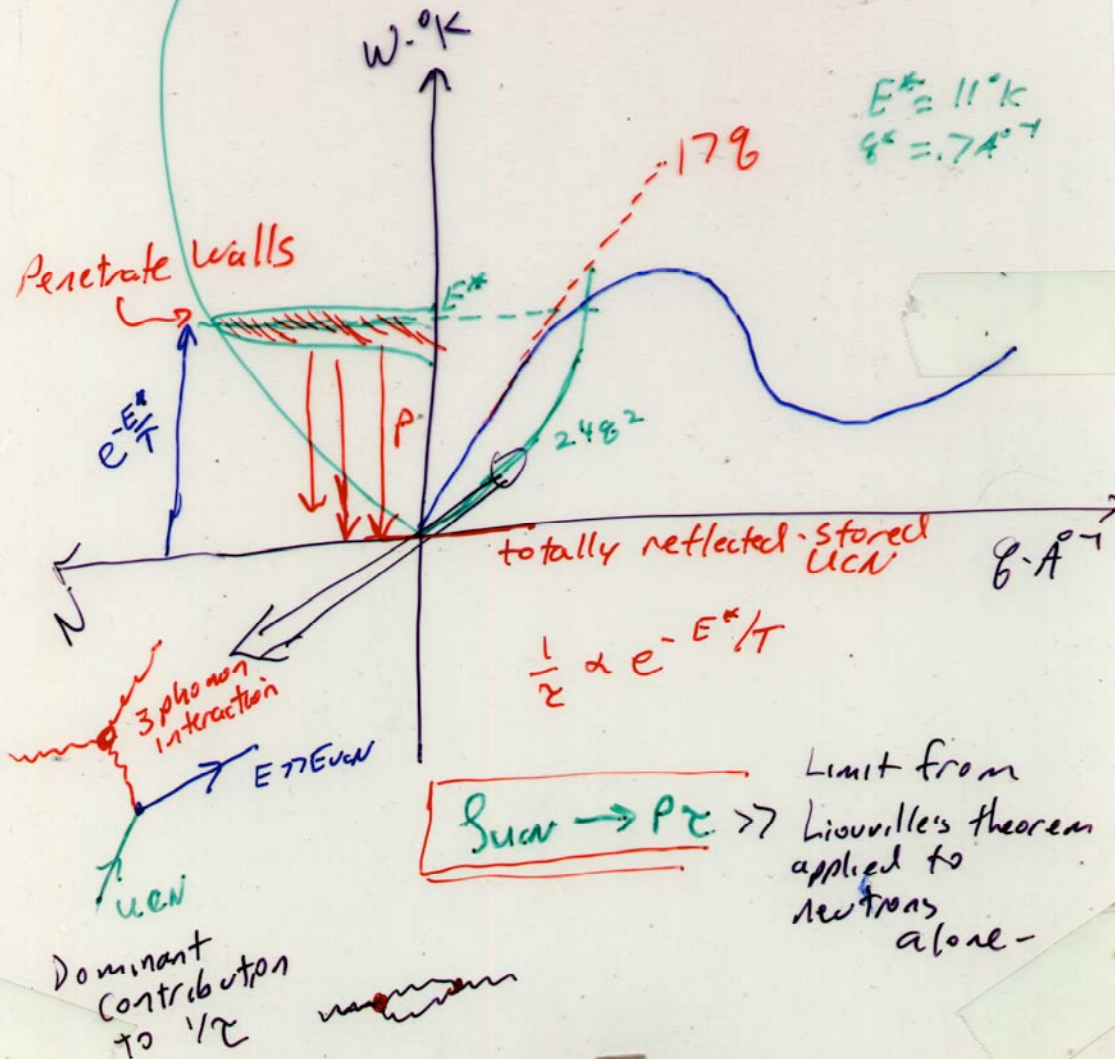 W-°K
E* = 11°K
q* = .7A°⁻¹
17q
Penetrate walls
E*
e^-E*/T
P
2.4q²
totally reflected-stored
UCN
q-A°⁻¹
N
1/τ ∝ e^-E*/T
3 phonon
interaction
E>>EUCN
UCN
ρUCN → Pτ >>
Limit from
Liouville's theorem
applied to
neutrons
alone-
Dominant
contribution
to 1/τ